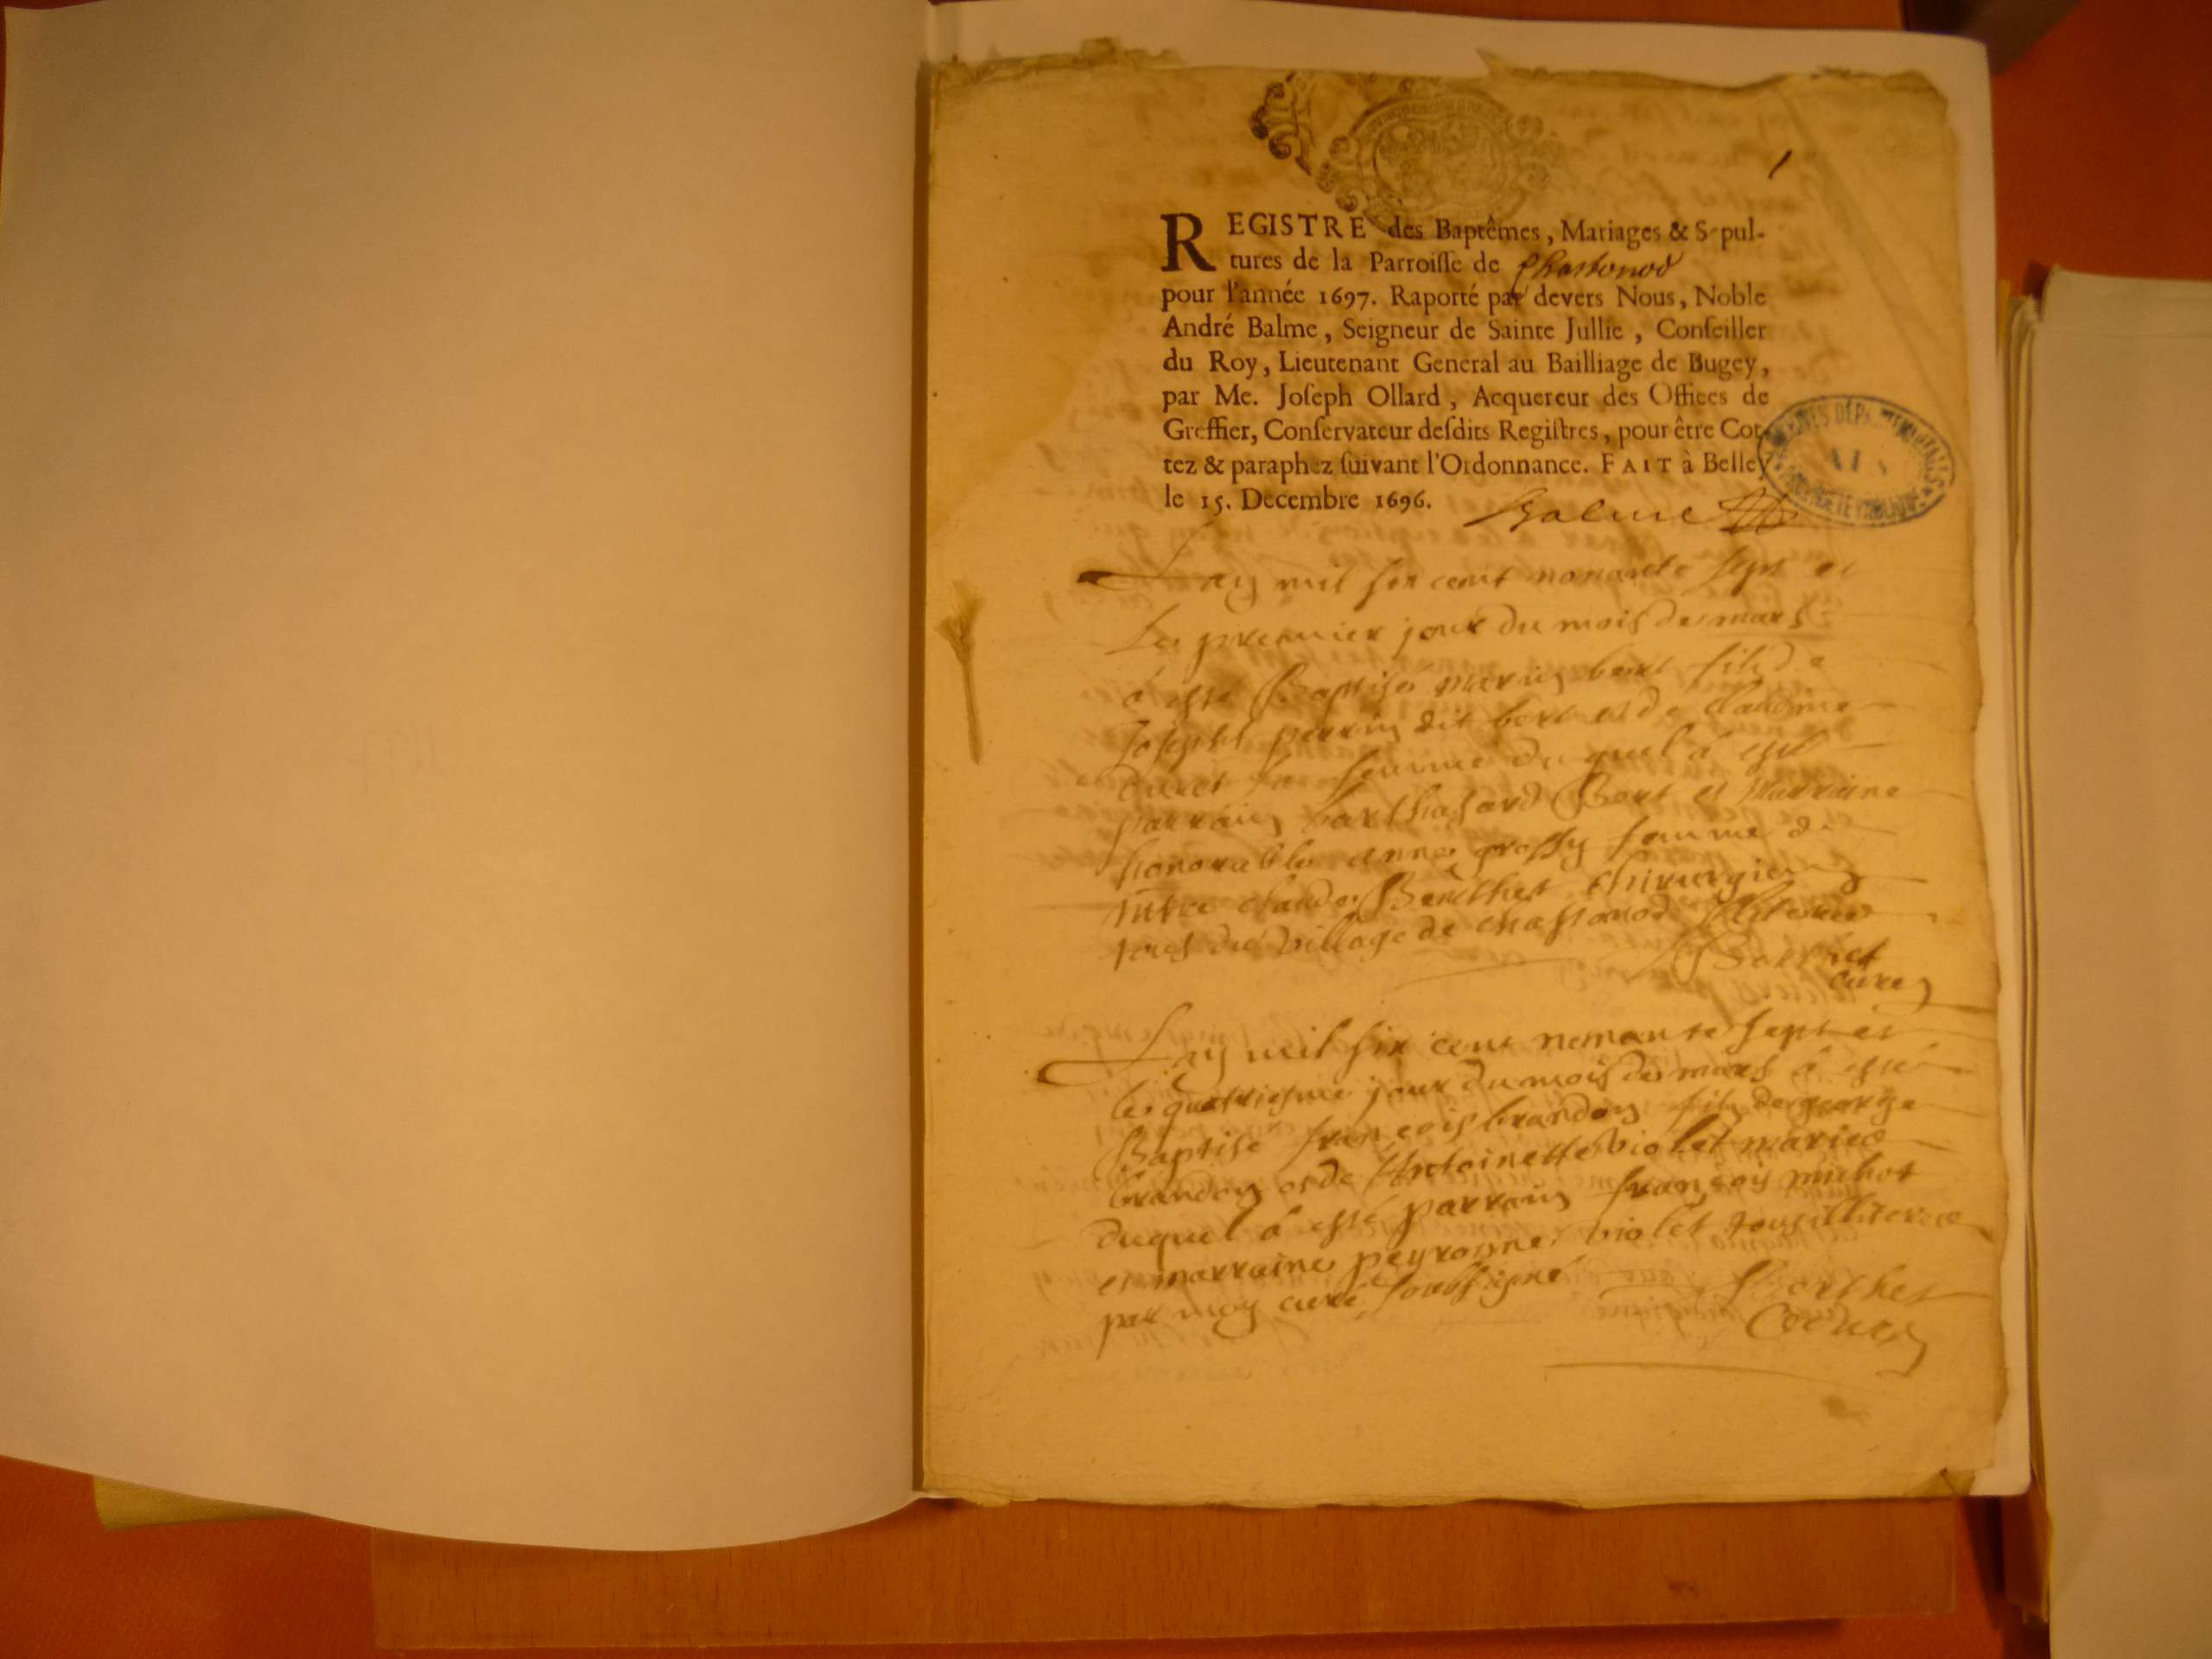 1
REGISTRE des Baptêmes, Mariages & Sepul-
tures de la Parroisse de Chastonod
pour l'année 1697. Raporté par devers Nous, Noble
André Balme, Seigneur de Sainte Jullie, Conseiller
du Roy, Lieutenant General au Bailliage de Bugey,
par Me. Joseph Ollard, Acquereur des Offices de
Greffier, Conservateur desdits Registres, pour être Cot-
tez & paraphez suivant l'Ordonnance. FAIT à Belley
le 15. Decembre 1696.
Balme
ARCHIVES DÉPARTEMENTALES AIN PROPRIÉTÉ PUBLIQUE
Lan mil six cent nonante sept et
le premier jour du mois de mars
à esté Baptisé bert fils de
Joseph perrin dit bert et de Claudine
sa femme duquel à esté
parrain Bert et marraine
honorable anne femme de
mtre claude Berthet chirurgien
tous du village de chastonod
Berthet
curé
Lan mil six cent nonante sept et
le quatriesme jour du mois de mars à esté
Baptisé françois brandon fils de george
brandon et de Antoinette violet mariés
duquel à esté parrain françois michot
et marraine peyronne violet tous illiterez
par moy curé soubsigné Berthet
curé